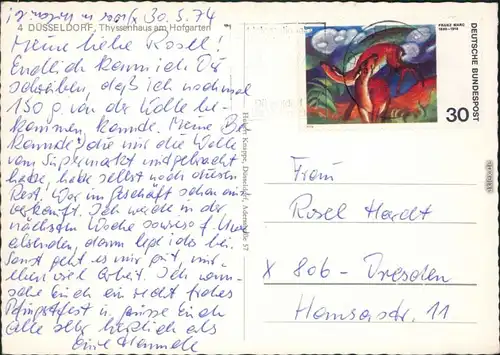 30.5.74
4 DÜSSELDORF, Thyssenhaus am Hofgarten
Meine liebe Rosel!
Endlich kann ich Dir
schreiben, daß ich nochmal
150 g von der Wolle be-
kommen konnte. Meine Be-
kannte, die mir die Wolle
vom Supermarkt mitgebracht
habe, habe selbst noch diesen
Rest. War im Geschäft schon aus-
verkauft. Ich werde in der
nächsten Woche sowieso
absenden, dann lege ich es bei.
Sonst geht es mir gut, nur
viel Arbeit. Ich wün-
sche Euch ein recht frohes
Pfingstfest u. grüsse Euch
alle sehr herzlich als
Eure Hannele
Hubert Knippe, Düsseldorf, 57
FRANZ MARC
1880-1916
DEUTSCHE BUNDESPOST
30
Frau
Rosel Hardt
X 806 - Dresden
Hansastr. 11